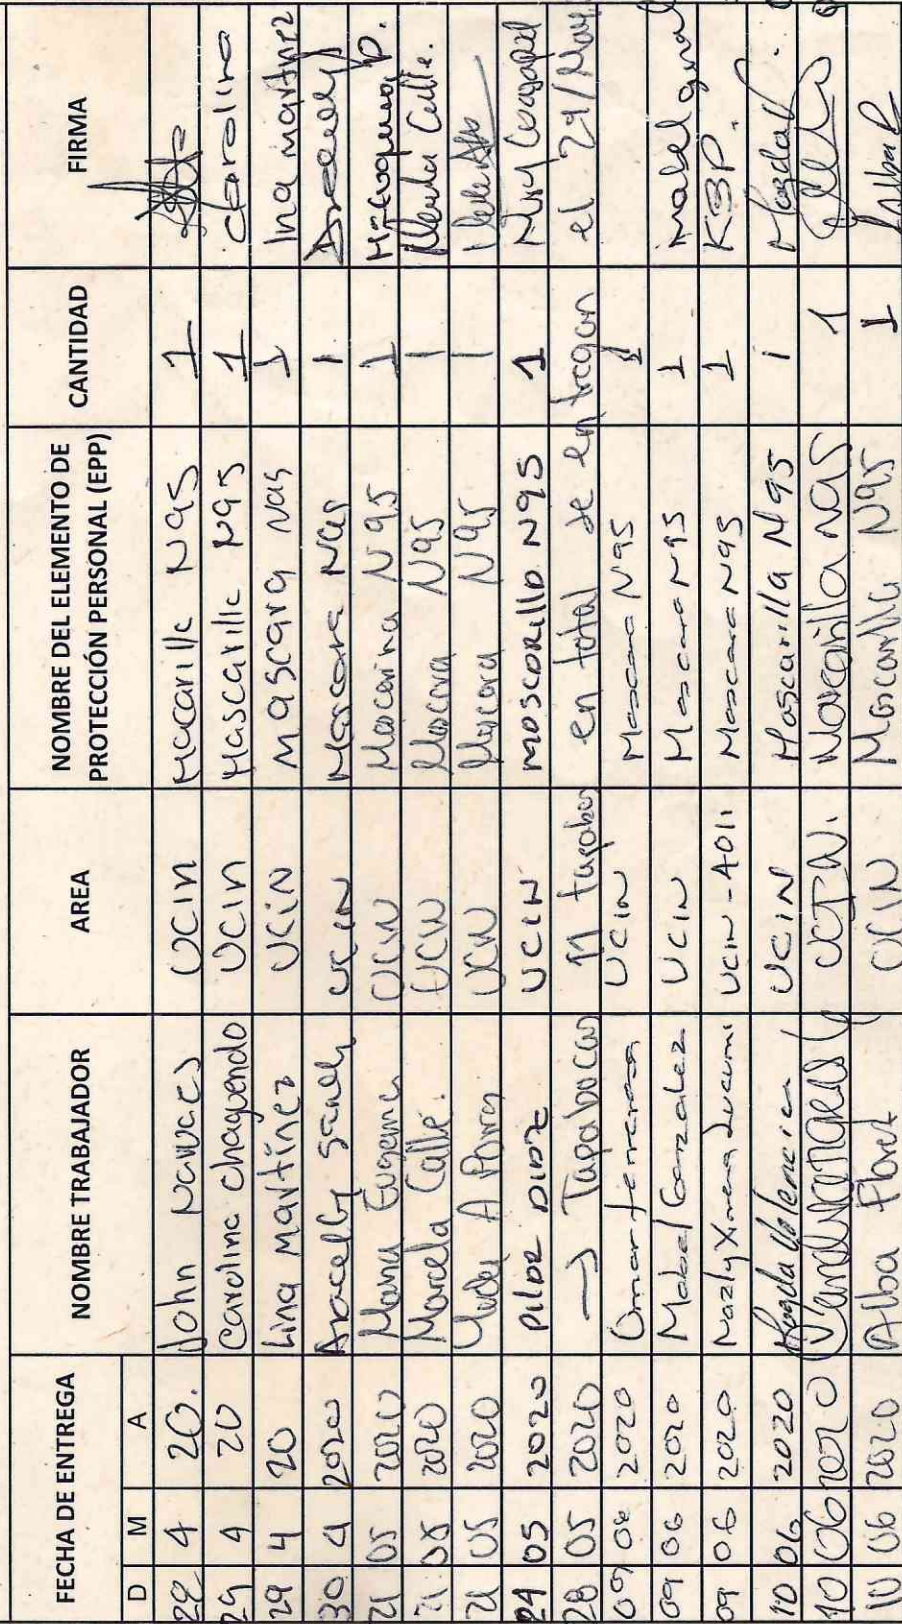 FECHA DE ENTREGA NOMBRE TRABAJADOR AREA NOMBRE DEL ELEMENTO DE PROTECCIÓN PERSONAL (EPP) CANTIDAD FIRMA
D M A
29 4 20. John UCIN N95 1
29 4 20 Carolina chaguendo UCIN Mascarilla N95 1 Carolina
29 4 20 Lina Martínez UCIN Mascara N95 1 Lina martinez
30 4 2020 Aracelly UCIN Mascara N95 1 Aracelly
21 05 2020 Maria Eugenia UCIN N95 1
21 05 2020 Marcela Calle. UCIN Mascara N95 1 Marcela Calle.
21 05 2020 UCIN Mascara N95 1
21 05 2020 PILAR DIAZ UCIN MASCARILLA N95 1
28 05 2020 → Tapabocas 11 en total se entregan el 29/May
09 06 2020 Omar UCIN Mascara N95 1
09 06 2020 Mabel Gonzalez UCIN Mascara N95 1 Mabel
09 06 2020 Nazly Ximena Lucumi UCIN-AD11 Mascara N95 1
10 06 2020 Magda Valencia UCIN Mascarilla N95 1 Magda
10 06 2020 UCIN. Mascarilla N95 1
10 06 2020 Alba UCIN Mascarilla N95 1